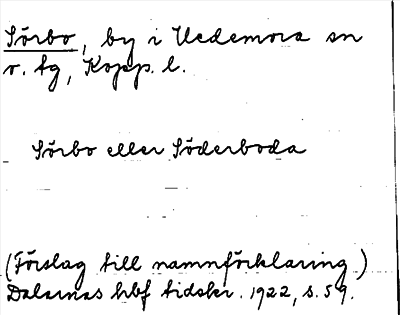 Sörbo, by i Hedemora sn
o. tg, Kopp. l.
Sörbo eller Söderboda
(Förslag till namnförklaring)
Dalarnas hbf tidskr. 1922, s. 59.